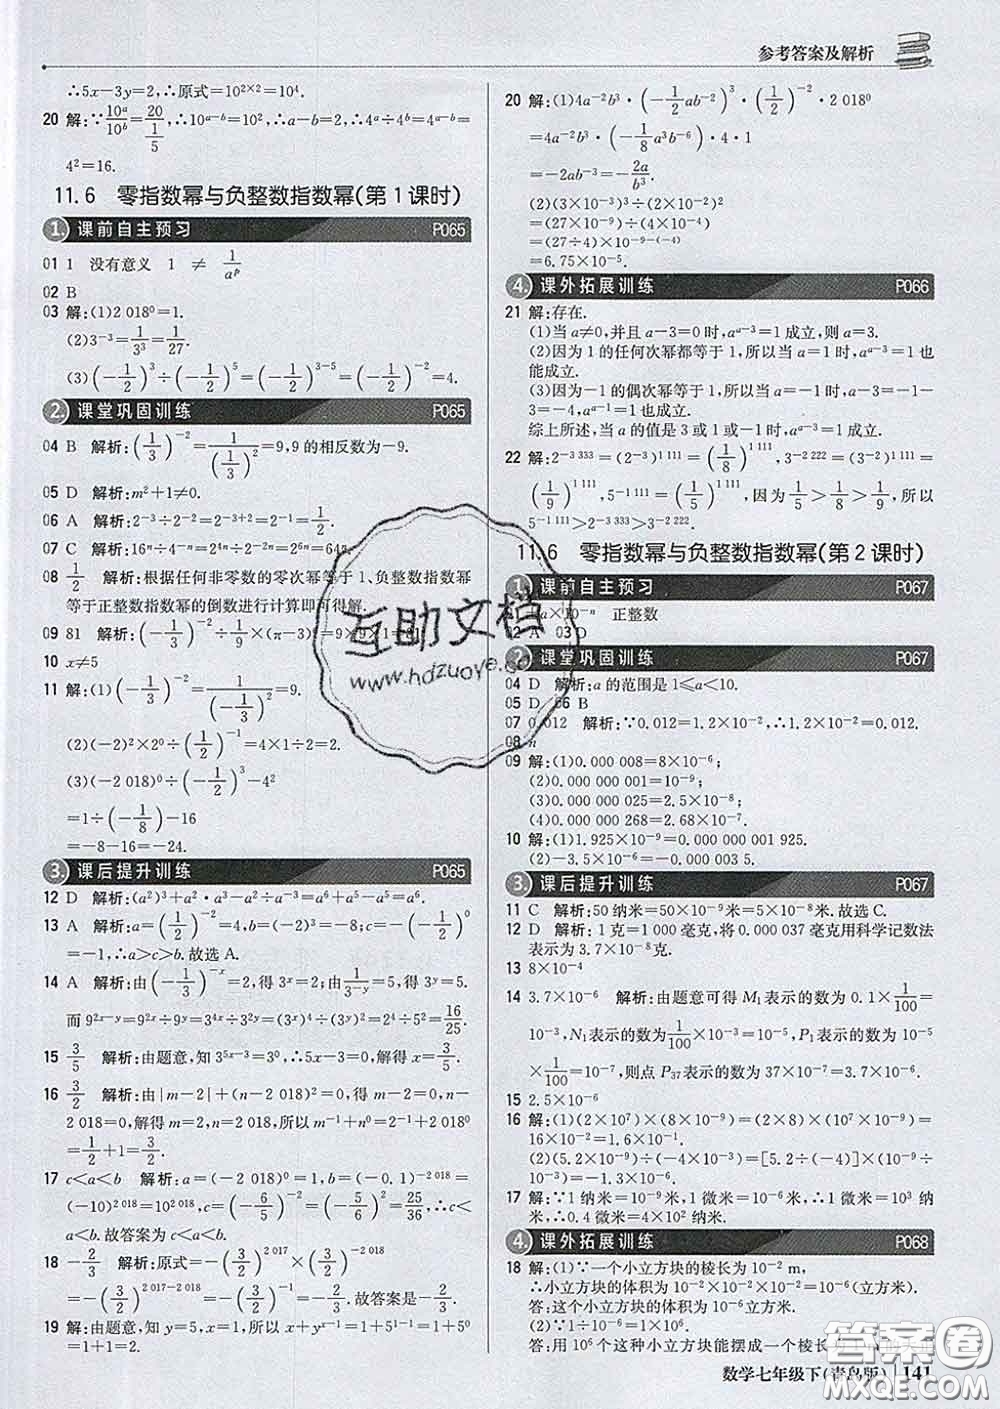 参考答案及解析
∴5x-3y=2,∴原式=10^{2×2}=10^4.
20 解:∵10^a/10^b=20/(1/5),∴10^{a-b}=10^2,∴a-b=2,∴4^a÷4^b=4^{a-b}=
4^2=16.
11.6 零指数幂与负整数指数幂(第1课时)
1. 课前自主预习 P065
01 1 没有意义 1 ≠ 1/a^p
02 B
03 解:(1)2 018^0=1.
(2)3^{-3}=1/3^3=1/27.
(3)(-1/2)^3÷(-1/2)^5=(-1/2)^{3-5}=(-1/2)^{-2}=4.
2. 课堂巩固训练 P065
04 B 解析:(1/3)^{-2}=1/(1/3)^2=9,9的相反数为-9.
05 D 解析:m^2+1≠0.
06 A 解析:2^{-3}÷2^{-2}=2^{-3+2}=2^{-1}=1/2.
07 C 解析:16^n÷4^n=4^{2n}÷4^n=4^n=2^{2n}=2^6=64.
08 1/2 解析:根据任何非零数的零次幂等于1、负整数指数幂
等于正整数指数幂的倒数进行计算即可得解.
09 81 解析:(-1/3)^{-2}÷1/9×(π-3)^0=9×9×1=81.
10 x≠5
11 解:(1)(-1/3)^{-2}=1/(-1/3)^2=9.
(2)(-2)^2×2^0÷(1/2)^{-1}=4×1÷2=2.
(3)(-2 018)^0÷(-1/2)^3-4^2
=1÷(-1/8)-16
=-8-16=-24.
3. 课后提升训练 P065
12 D 解析:(a^2)^3+a^2·a^3-a^2÷a^{-3}=a^6+a^5-a^5=a^6.
13 A 解析:a=(1/2)^{-2}=4;b=(-2)^3=-8;c=-(-1/2)^0
=-1,∴a>c>b.故选A.
14 A 解析:由(1/3)^{-x}=2,得3^x=2;由(1/3)^{-y}=5,得3^y=5.
而9^{2x-y}=9^{2x}÷9^y=3^{4x}÷3^{2y}=(3^x)^4÷(3^y)^2=2^4÷5^2=16/25.
15 3/5 解析:由题意,知3^{5x-3}=3^0,∴5x-3=0,解得x=3/5.
16 3/2 解析:由|m-2|+(n-2 018)^2=0,得m-2=0,n-
2 018=0,解得m=2,n=2 018.所以m^{-1}+n^0=2^{-1}+2 018^0
=1/2+1=3/2.
17 c<a<b 解析:a=(-2 018)^0=1,b=(-0.1)^{-2 018}=
(-10)^{2 018}=10^{2 018},c=-(-6/5)^{-2}=-(-5/6)^2=-25/36,∴c<a
<b.故答案为c<a<b.
18 -2/3 解析:原式=-(3/2)^{2 017}×(3/2)^{-2 018}=
-(3/2)^{2 017-2 018}=-(3/2)^{-1}=-2/3.故答案是-2/3.
19 解:由题意,知y=5,x=1,所以x+y^{x-1}=1+5^{1-1}=1+5^0
=1+1=2.
20 解:(1)4a^{-2}b^3·(-1/2 ab^{-2})^3·(1/2)^{-2}·2 018^0
=4a^{-2}b^3·(-1/8 a^3b^{-6})·4·1
=-2ab^{-3}=-2a/b^3.
(2)(3×10^{-5})^3÷(2×10^{-2})^2
=(27×10^{-15})÷(4×10^{-4})
=(27÷4)×10^{-15-(-4)}
=6.75×10^{-11}.
4. 课外拓展训练 P066
21 解:存在.
(1)当a≠0,并且a-3=0时,a^{a-3}=1成立,则a=3.
(2)因为1的任何次幂都等于1,所以当a=1时,a^{a-3}=1也
能成立.
(3)因为-1的偶次幂等于1,所以当a=-1时,a-3=-1-
3=-4,a^{a-3}=1也成立.
综上所述,当a的值是3或1或-1时,a^{a-3}=1成立.
22 解:2^{-3 333}=(2^{-3})^{1 111}=(1/8)^{1 111},3^{-2 222}=(3^{-2})^{1 111}=
(1/9)^{1 111},5^{-1 111}=(1/5)^{1 111},因为1/5>1/8>1/9,所以
5^{-1 111}>2^{-3 333}>3^{-2 222}.
11.6 零指数幂与负整数指数幂(第2课时)
1. 课前自主预习 P067
01 a×10^{-n} 正整数
02 A 03 D
2. 课堂巩固训练 P067
04 D 解析:a的范围是1≤a<10.
05 D 06 B
07 0.012 解析:∵0.012=1.2×10^{-2},∴1.2×10^{-2}=0.012.
08 n
09 解:(1)0.000 008=8×10^{-6};
(2)0.000 000 001=10^{-9};
(3)0.000 000 025=2.5×10^{-8};
(4)0.000 000 268=2.68×10^{-7}.
10 解:(1)1.925×10^{-9}=0.000 000 001 925.
(2)-1.38×10^{-3}=-0.001 38.
3. 课后提升训练 P067
11 C 解析:50纳米=50×10^{-9}米=5×10^{-8}米.故选C.
12 D 解析:1克=1 000毫克,将0.000 037毫克用科学记数法
表示为3.7×10^{-8}克.
13 8×10^{-4}
14 3.7×10^{-6} 解析:由题意可得M1表示的数为0.1×1/100=
10^{-3},N1表示的数为1/100×10^{-3}=10^{-5},P1表示的数为10^{-5}
×1/100=10^{-7},则点P37表示的数为37×10^{-7}=3.7×10^{-6}.
15 2.5×10^{-6}
16 解:(1)(2×10^7)×(8×10^{-9})=(2×8)×(10^7×10^{-9})=
16×10^{-2}=1.6×10^{-1}.
(2)(5.2×10^{-9})÷(-4×10^{-3})=[5.2÷(-4)]×(10^{-9}÷
10^{-3})=-1.3×10^{-6}.
17 解:∵1纳米=10^{-9}米,1微米=10^{-6}米,∴1微米=10^3纳
米,∴0.4微米=4×10^2纳米.
4. 课外拓展训练 P068
18 解:(1)∵一个小立方块的棱长为10^{-2}m,
∴小立方块的体积为10^{-2}×10^{-2}×10^{-2}=10^{-6}(立方米).
答:这个小立方块的体积为10^{-6}立方米.
(2)∵1÷10^{-6}=10^6,
答:用10^6个这种小立方块能摆成一个棱长
数学七年级下(青岛版) 141
互助文档
www.hdzuoye.com
答案圈
MXQE.COM